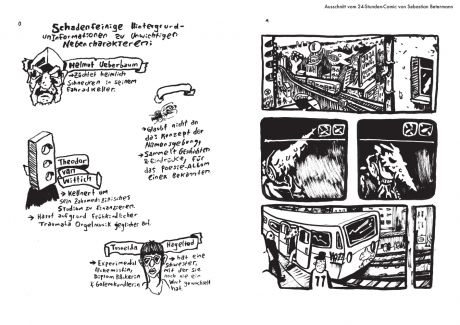 Ausschnitt vom 24-Stunden-Comic von Sebastian Betermann
Schadenfeinige Hintergrund-
informationen zu Unwichtigen
Nebencharakteren:
Helmut Ueberbaum
→ Züchtet heimlich
Schnecken in seinem
Fahrradkeller.
→ Glaubt nicht an
das Konzept der
Namensgebung,
→ Sammelt Geschichten
& Eindrücke, für
das Poesie-Album
eines Bekannten
Theodor
van
Wittlich
→ Kellnert um
sein Zahnmedizinisches
Studium zu finanzieren.
→ Hasst aufgrund frühkindlicher
Traumata Orgelmusik jeglicher Art.
Tusnelda
Hagelbod
→ Experimental
Alchemistin,
Diplom Bäckerin
& Golemkundlerin
→ hat eine
Schwester,
mit der sie
noch nie ein
Wort gewechselt
hat.